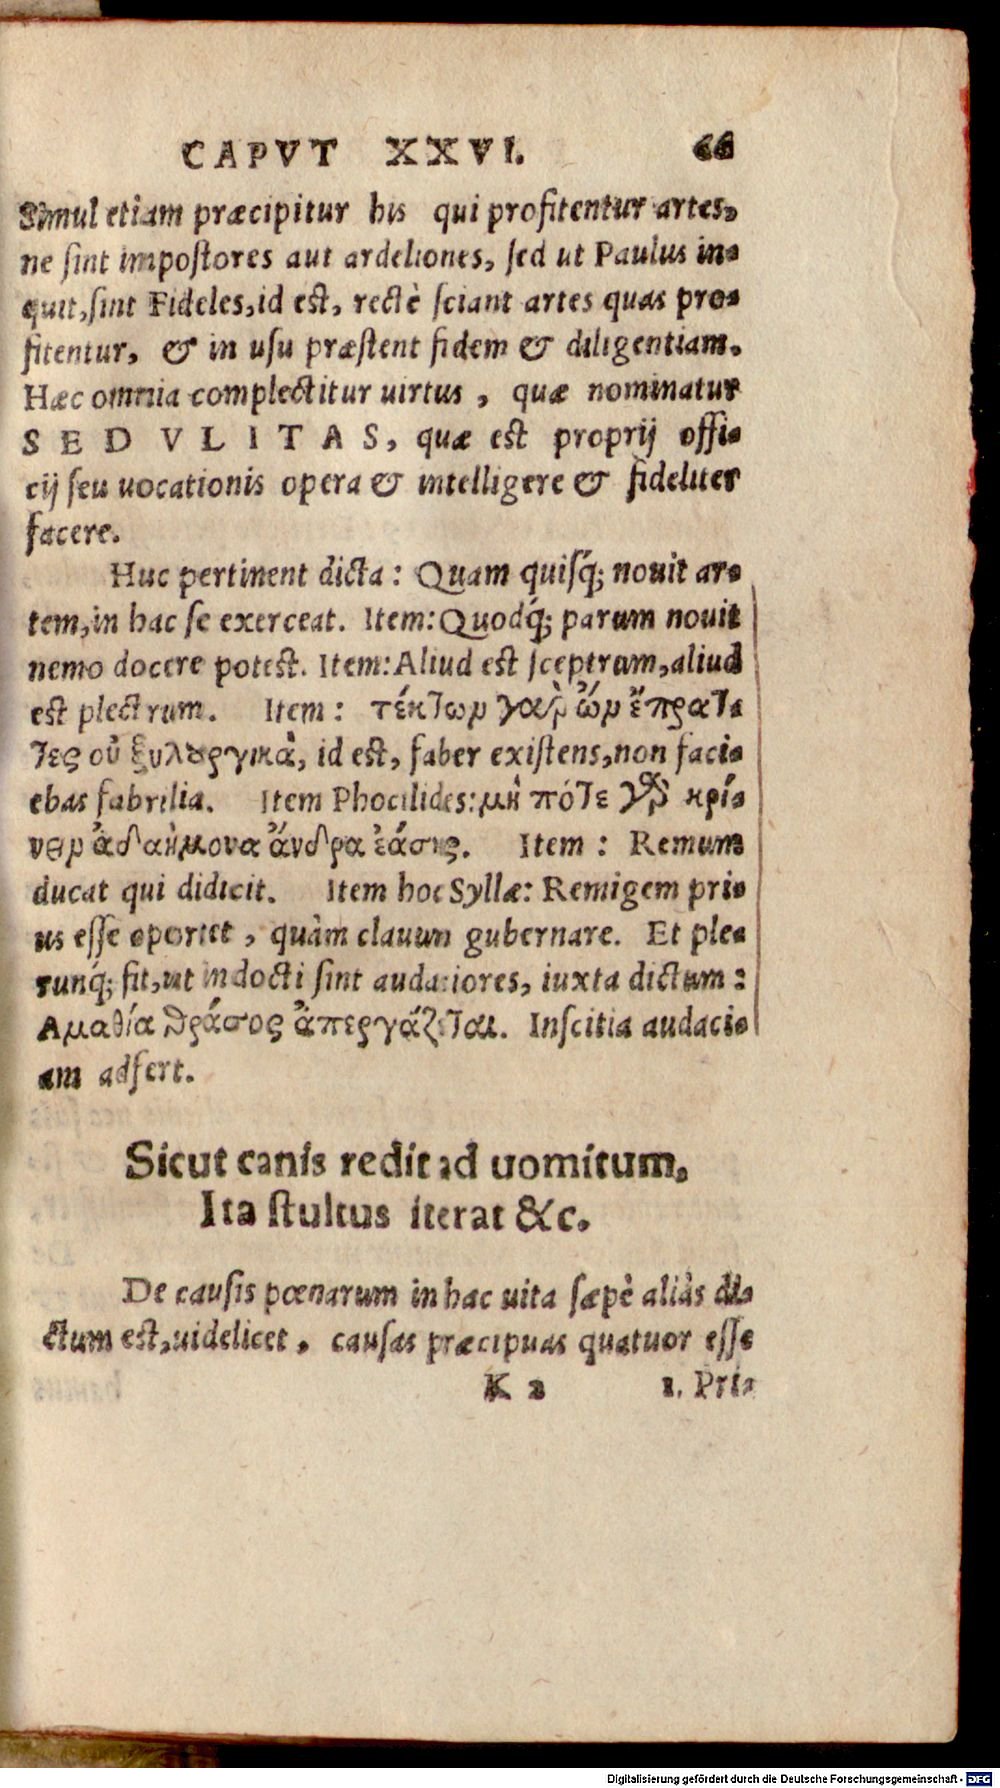 CAPVT XXVI. 66
Simul etiam præcipitur his qui profitentur artes,
ne ſint impoſtores aut ardeliones, ſed ut Paulus in-
quit, ſint Fideles, id eſt, rectè ſciant artes quas pro-
fitentur, & in uſu præſtent fidem & diligentiam.
Hæc omnia complectitur uirtus, quæ nominatur
SEDVLITAS, quæ eſt proprij offi-
cij ſeu uocationis opera & intelligere & fideliter
facere.
Huc pertinent dicta: Quam quiſq́; nouit ar-
tem, in hac ſe exerceat. Item: Quodq́; parum nouit
nemo docere poteſt. Item: Aliud eſt ſceptrum, aliud
eſt plectrum. Item: τέκτων γὰρ ὢν ἔπρατ-
τες οὐ ξυλουργικὰ, id eſt, faber exiſtens, non faci-
ebas fabrilia. Item Phocilides: μὴ πότε γὰρ κρί-
νειν ἀδαήμονα ἄνδρα ἐάσης. Item: Remum
ducat qui didicit. Item hoc Syllæ: Remigem pri-
us eſſe oportet, quàm clauum gubernare. Et ple-
runq́; fit, ut indocti ſint audatiores, iuxta dictum:
Αμαθία θράσος ἀπεργάζεται. Inſcitia audaci-
am adfert.
Sicut canis redit ad uomitum,
Ita ſtultus iterat &c.
De causis pœnarum in hac uita ſæpè aliàs di-
ctum eſt, uidelicet, cauſas præcipuas quatuor eſſe
K 2 1. Pri-
Digitalisierung gefördert durch die Deutsche Forschungsgemeinschaft - DFG